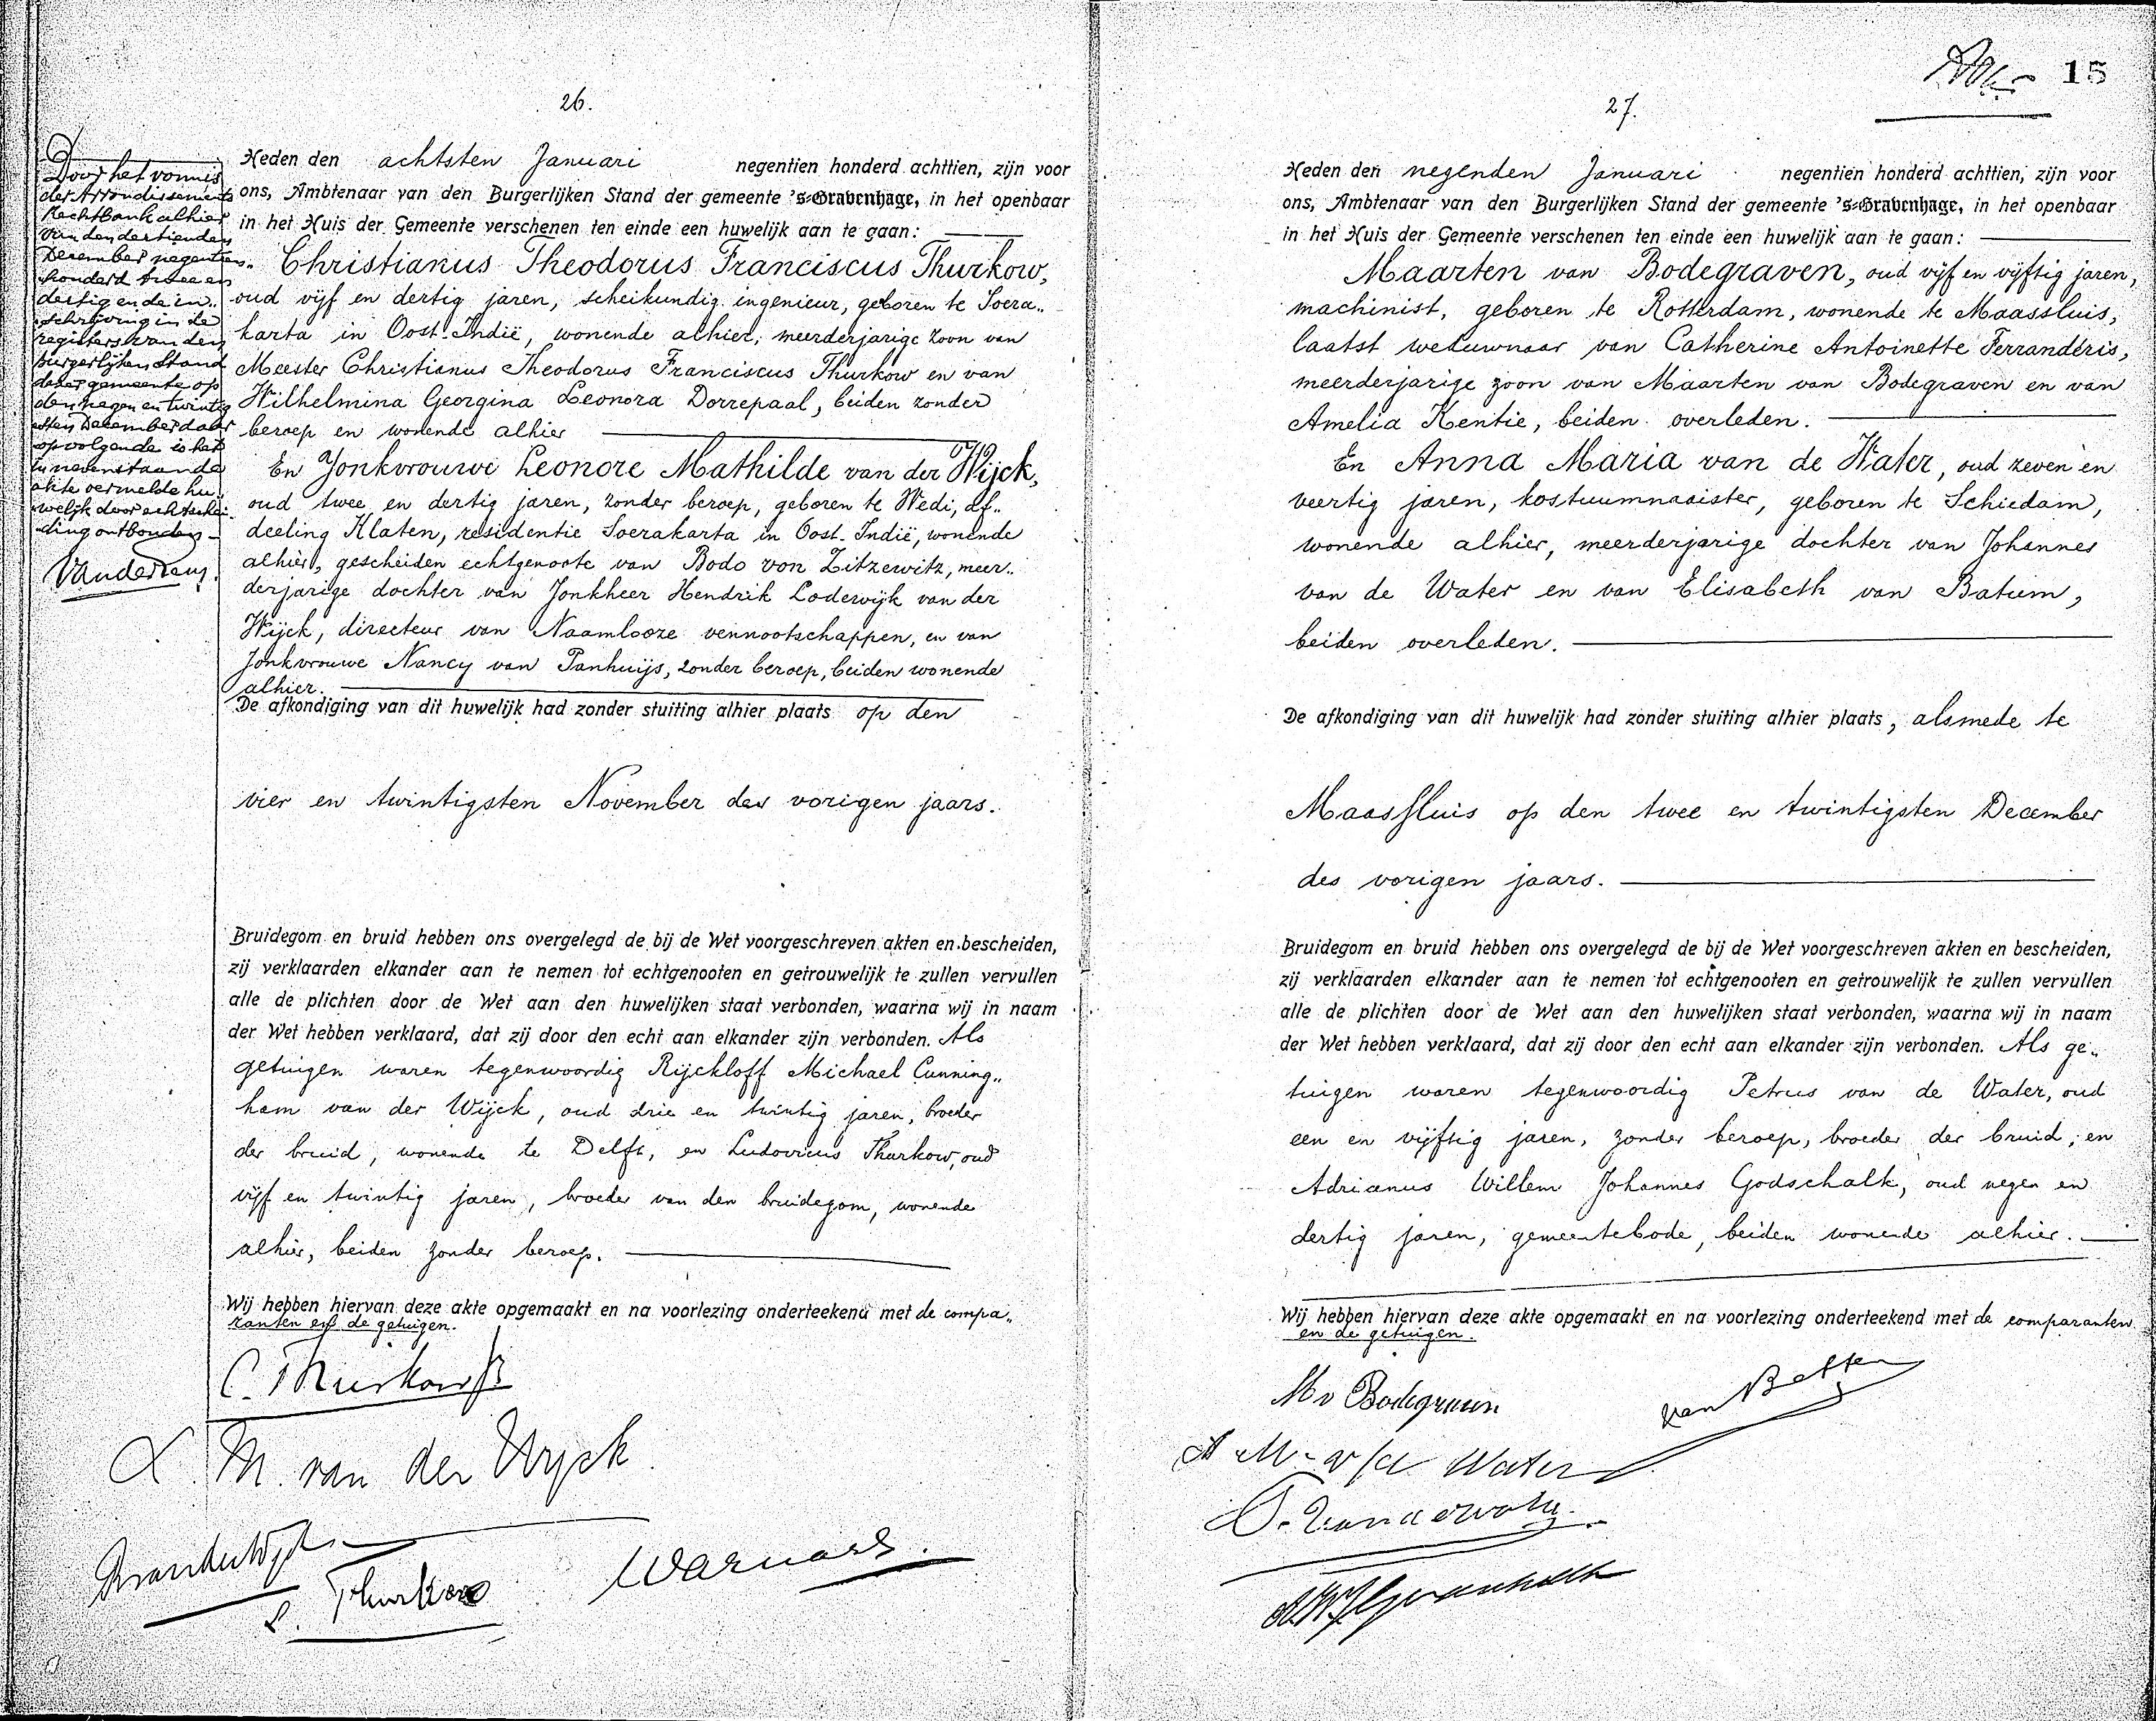 26.
Door het vonnis
der Arrondissements
Rechtbank alhier
van den dertienden
December negentien
honderd twee en
dertig en de in„
schrijving in de
registers van den
burgerlijken Stand
dezer gemeente op
den negen en twintig
sten December daar
opvolgende is het
in nevenstaande
akte vermelde hu„
welijk door echtschei„
ding ontbonden
Heden den achtsten Januari negentien honderd achttien, zijn voor
ons, Ambtenaar van den Burgerlijken Stand der gemeente 's-Gravenhage, in het openbaar
in het Huis der Gemeente verschenen ten einde een huwelijk aan te gaan:
Christianus Theodorus Franciscus Thurkow,
oud vijf en dertig jaren, scheikundig ingenieur, geboren te Soera„
karta in Oost-Indië, wonende alhier, meerderjarige zoon van
Meester Christianus Theodorus Franciscus Thurkow en van
Wilhelmina Georgina Leonora Dorrepaal, beiden zonder
beroep en wonende alhier
En Jonkvrouwe Leonore Mathilde van der Wijck,
oud twee en dertig jaren, zonder beroep, geboren te Wedi, af„
deeling Klaten, residentie Soerakarta in Oost-Indië, wonende
alhier, gescheiden echtgenoote van Bodo von Zitzewitz, meer„
derjarige dochter van Jonkheer Hendrik Lodewijk van der
Wijck, directeur van Naamlooze vennootschappen, en van
Jonkvrouwe Nancy van Panhuijs, zonder beroep, beiden wonende
alhier.
De afkondiging van dit huwelijk had zonder stuiting alhier plaats op den
vier en twintigsten November des vorigen jaars.
Bruidegom en bruid hebben ons overgelegd de bij de Wet voorgeschreven akten en bescheiden,
zij verklaarden elkander aan te nemen tot echtgenooten en getrouwelijk te zullen vervullen
alle de plichten door de Wet aan den huwelijken staat verbonden, waarna wij in naam
der Wet hebben verklaard, dat zij door den echt aan elkander zijn verbonden. Als
getuigen waren tegenwoordig Rijckloff Michael Cunning„
ham van der Wijck, oud drie en twintig jaren, broeder
der bruid, wonende te Delft, en Ludovicus Thurkow, oud
vijf en twintig jaren, broeder van den bruidegom, wonende
alhier, beiden zonder beroep.
Wij hebben hiervan deze akte opgemaakt en na voorlezing onderteekend met de compa„
ranten en de getuigen.
C. Thurkow
L. M. van der Wyck
L. Thurkow
Warnars.
15
27.
Heden den negenden Januari negentien honderd achttien, zijn voor
ons, Ambtenaar van den Burgerlijken Stand der gemeente 's-Gravenhage, in het openbaar
in het Huis der Gemeente verschenen ten einde een huwelijk aan te gaan:
Maarten van Bodegraven, oud vijf en vijftig jaren,
machinist, geboren te Rotterdam, wonende te Maassluis,
laatst weduwnaar van Catherine Antoinette Ferrandéris,
meerderjarige zoon van Maarten van Bodegraven en van
Amelia Kentie, beiden overleden.
En Anna Maria van de Water, oud zeven en
veertig jaren, kostuumnaaister, geboren te Schiedam,
wonende alhier, meerderjarige dochter van Johannes
van de Water en van Elisabeth van Batum,
beiden overleden.
De afkondiging van dit huwelijk had zonder stuiting alhier plaats, alsmede te
Maassluis op den twee en twintigsten December
des vorigen jaars.
Bruidegom en bruid hebben ons overgelegd de bij de Wet voorgeschreven akten en bescheiden,
zij verklaarden elkander aan te nemen tot echtgenooten en getrouwelijk te zullen vervullen
alle de plichten door de Wet aan den huwelijken staat verbonden, waarna wij in naam
der Wet hebben verklaard, dat zij door den echt aan elkander zijn verbonden. Als ge„
tuigen waren tegenwoordig Petrus van de Water, oud
een en vijftig jaren, zonder beroep, broeder der bruid, en
Adrianus Willem Johannes Godschalk, oud negen en
dertig jaren, gemeentebode, beiden wonende alhier.
Wij hebben hiervan deze akte opgemaakt en na voorlezing onderteekend met de comparanten
en de getuigen.
M v Bodegraven
van Batten
A M v/d Water
P. van de Water